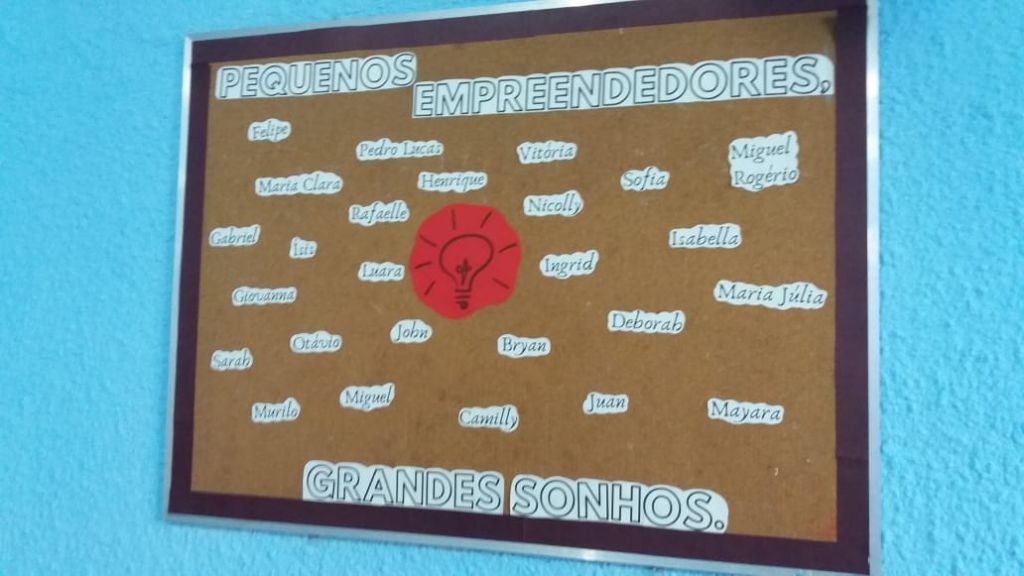 PEQUENOS EMPREENDEDORES,
Felipe
Pedro Lucas
Vitória
Miguel
Rogério
Maria Clara
Henrique
Sofia
Rafaelle
Nicolly
Gabriel
Isis
Isabella
Luara
Ingrid
Giovanna
Maria Júlia
Otávio
John
Deborah
Sarah
Bryan
Murilo
Miguel
Camilly
Juan
Mayara
GRANDES SONHOS.